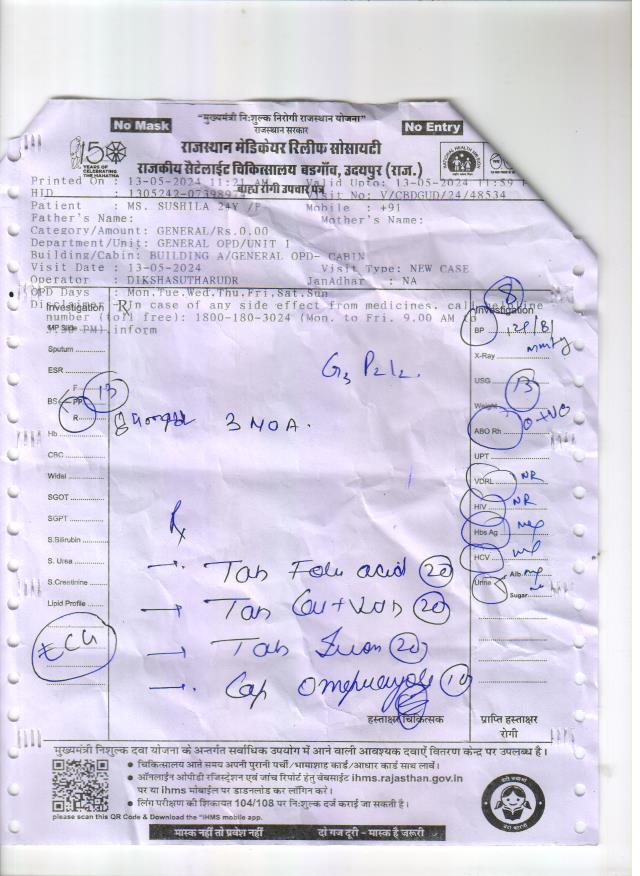 "मुख्यमंत्री नि:शुल्क निरोगी राजस्थान योजना"
राजस्थान सरकार
No Mask
No Entry
150
YEARS OF
CELEBRATING
THE MAHATMA
राजस्थान मेडिकेयर रिलीफ सोसायटी
राजकीय सैटेलाईट चिकित्सालय बडगाँव, उदयपुर (राज.)
बाह्य रोगी उपचार पत्र
Printed On : 13-05-2024 11:21 AM Valid Upto: 13-05-2024 11:59
HID : 1305242-0739897 Visit No: V/CBDGUD/24/48534
Patient : MS. SUSHILA 24Y /F Mobile : +91
Father's Name: Mother's Name:
Category/Amount: GENERAL/Rs.0.00
Department/Unit: GENERAL OPD/UNIT 1
Building/Cabin: BUILDING A/GENERAL OPD- CABIN
Visit Date : 13-05-2024 Visit Type: NEW CASE
Operator : DIKSHASUTHARUDR JanAdhar : NA
OPD Days : Mon.Tue.Wed.Thu.Fri.Sat.Sun
Disclaimer : In case of any side effect from medicines. call
number (toll free): 1800-180-3024 (Mon. to Fri. 9.00 AM to
PM) inform
Investigation
Rx
8
Investigation
MP Slide
BP
Sputum
X-Ray
ESR
G3 P2L2
USG 13
BS F
PP 13
R
Weight
3 MOA.
Hb
ABO Rh O+VO
CBC
UPT
Widal
VDRL NR
SGOT
HIV NR
SGPT
Hbs Ag
S.Bilirubin
HCV
S. Urea
Urine Alb.
Sugar
S.Creatinine
Lipid Profile
ECG
Rx
→ Tab Folic acid 20
→ Tab 20
→ Tab 20
→ Cap Omeprazole 10
हस्ताक्षर चिकित्सक
प्राप्ति हस्ताक्षर
रोगी
मुख्यमंत्री निःशुल्क दवा योजना के अन्तर्गत सर्वाधिक उपयोग में आने वाली आवश्यक दवाऐं वितरण केन्द्र पर उपलब्ध है।
• चिकित्सालय आते समय अपनी पुरानी पर्ची/भामाशाह कार्ड/आधार कार्ड साथ लावें।
• ऑनलाईन ओपीडी रजिस्ट्रेशन एवं जांच रिपोर्ट हेतु वेबसाईट ihms.rajasthan.gov.in
पर या ihms मोबाईल पर डाउनलोड कर लॉगिन करे।
• लिंग परीक्षण की शिकायत 104/108 पर निःशुल्क दर्ज कराई जा सकती है।
please scan this QR Code & Download the "IHMS mobile app.
मास्क नहीं तो प्रवेश नहीं
दो गज दूरी - मास्क है ज़रूरी